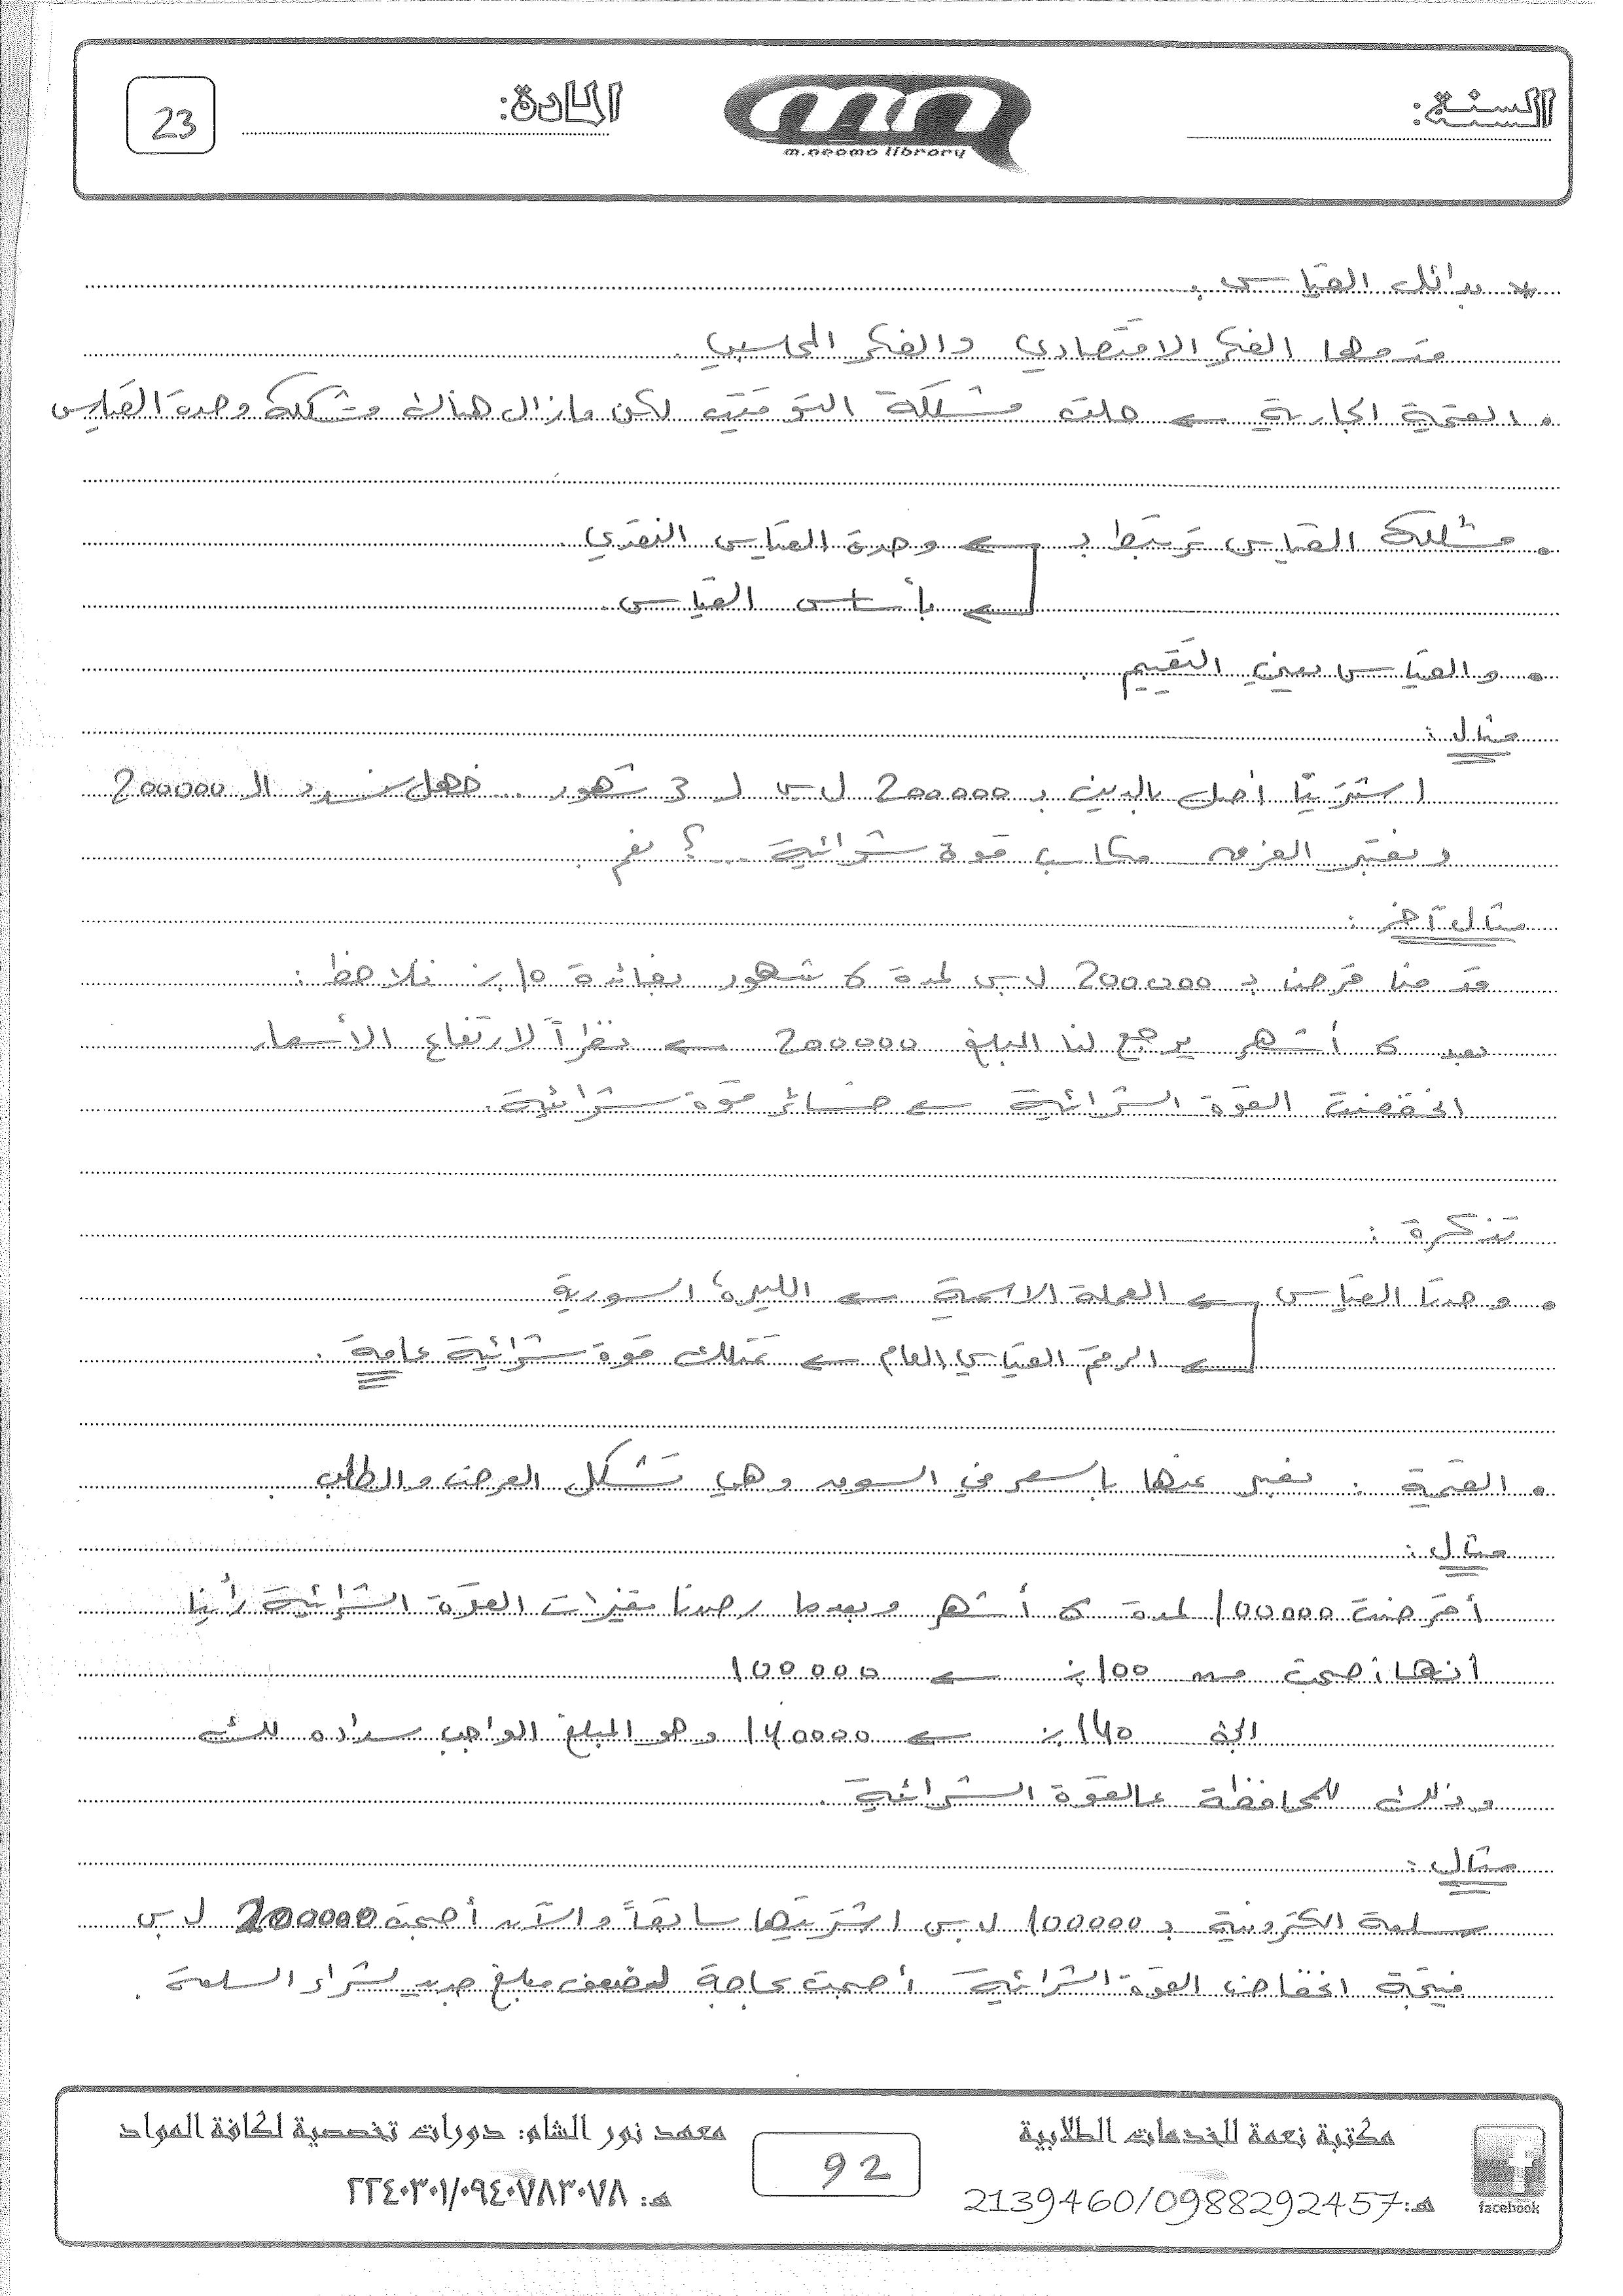 السنة:
m.neama library
المادة:
23
* بدائل القياس :
قدمها الفكر الاقتصادي والفكر المحاسبي .
• القيمة الجارية ← حلت مشكلة التوقيت لكن مازال هناك مشكلة وحدة القياس
• مشكلة القياس ترتبط بـ ← وحدة القياس النقدي .
← بأساس القياس .
• والقياس يعني التقييم .
مثال :
اشترينا أصل بالدين بـ 200000 ل.س لـ 3 شهور .. فهل نسدد الـ 200000
ونعتبر الفرق مكاسب قوة شرائية ...؟ نعم .
مثال آخر :
قدمنا قرض بـ 200000 ل.س لمدة 6 شهور بفائدة 10٪ نلاحظ :
بعد 6 أشهر يرجع لنا المبلغ 200000 ← نظراً لارتفاع الأسعار
انخفضت القوة الشرائية ← خسائر قوة شرائية .
تذكرة :
• وحدتا القياس ← العملة الاسمية ← الليرة السورية
← الرقم القياسي العام ← تمتلك قوة شرائية عامة .
• القيمة : نعبر عنها بالسعر في السوق وهي تشكل العرض والطلب .
مثال :
أقرضت 100000 لمدة 6 أشهر وبعدما رصدنا تغيرات القوة الشرائية رأينا
أنها أصبحت من 100٪ ← 100000
إلى 140٪ ← 140000 وهو المبلغ الواجب سداده لك
وذلك للمحافظة عالقوة الشرائية .
مثال :
سلعة الكترونية بـ 100000 ل.س اشتريتها سابقاً والآن أصبحت 200000 ل.س
نتيجة انخفاض القوة الشرائية أصبحت بحاجة لضعف مبلغ جديد لشراء السلعة .
مكتبة نعمة للخدمات الطلابية
هـ: 2139460/0988292457
facebook
92
معهد نور الشام: دورات تخصصية لكافة المواد
هـ: ٢٢٤٠٣٠١/٠٩٤٠٧٨٣٠٧٨